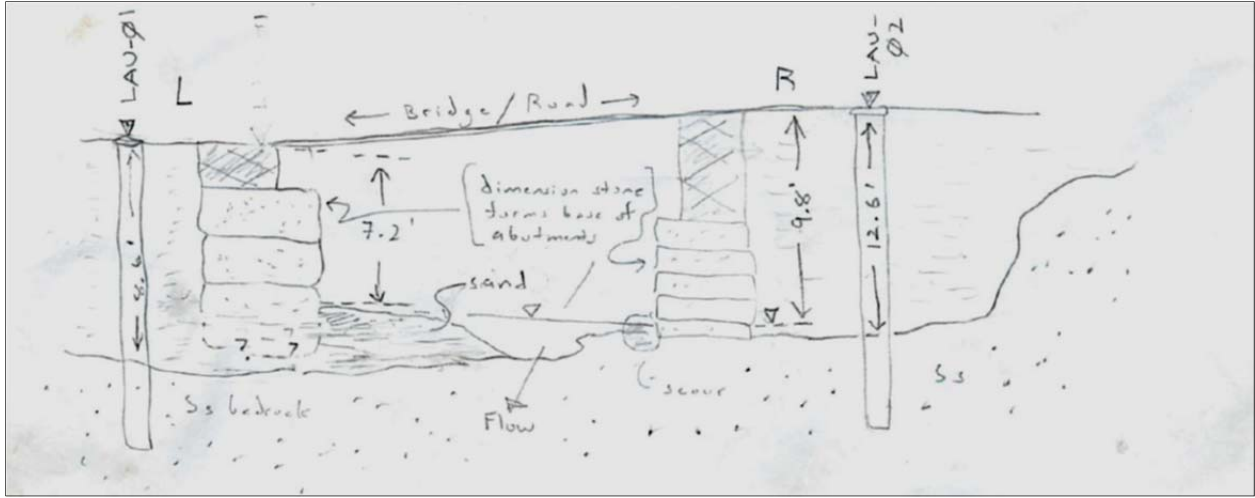 LAU-Ø1
L
← Bridge/Road →
R
LAU-
Ø2
dimension stone
forms base of
abutments
7.2'
9.8'
12.6'
8.6'
sand
? ?
Ss bedrock
scour
Flow
Ss